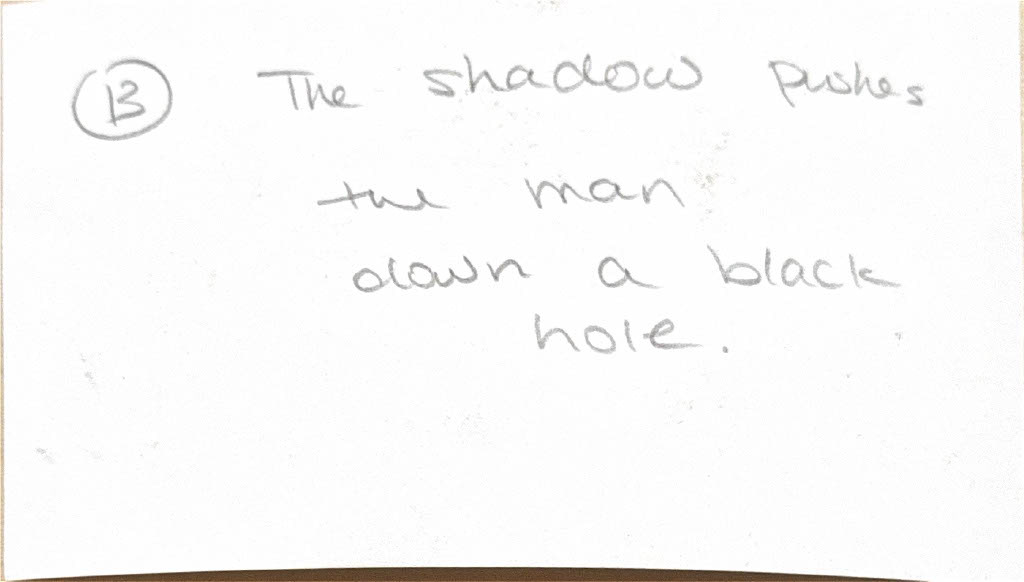 B The shadow pushes
the man
down a black
hole.